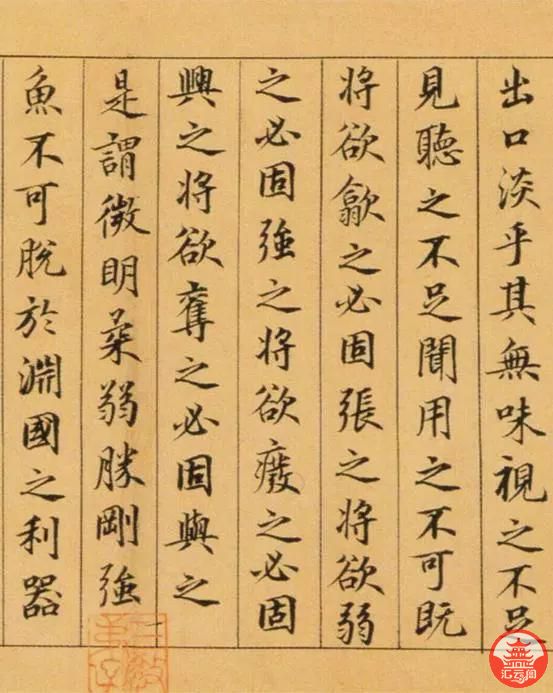 出口淡乎其無味視之不足
見聽之不足聞用之不可既
将欲歙之必固張之将欲弱
之必固強之将欲廢之必固
興之将欲奪之必固與之
是謂微明柔弱勝剛強
魚不可脫於淵國之利器
汇云阁